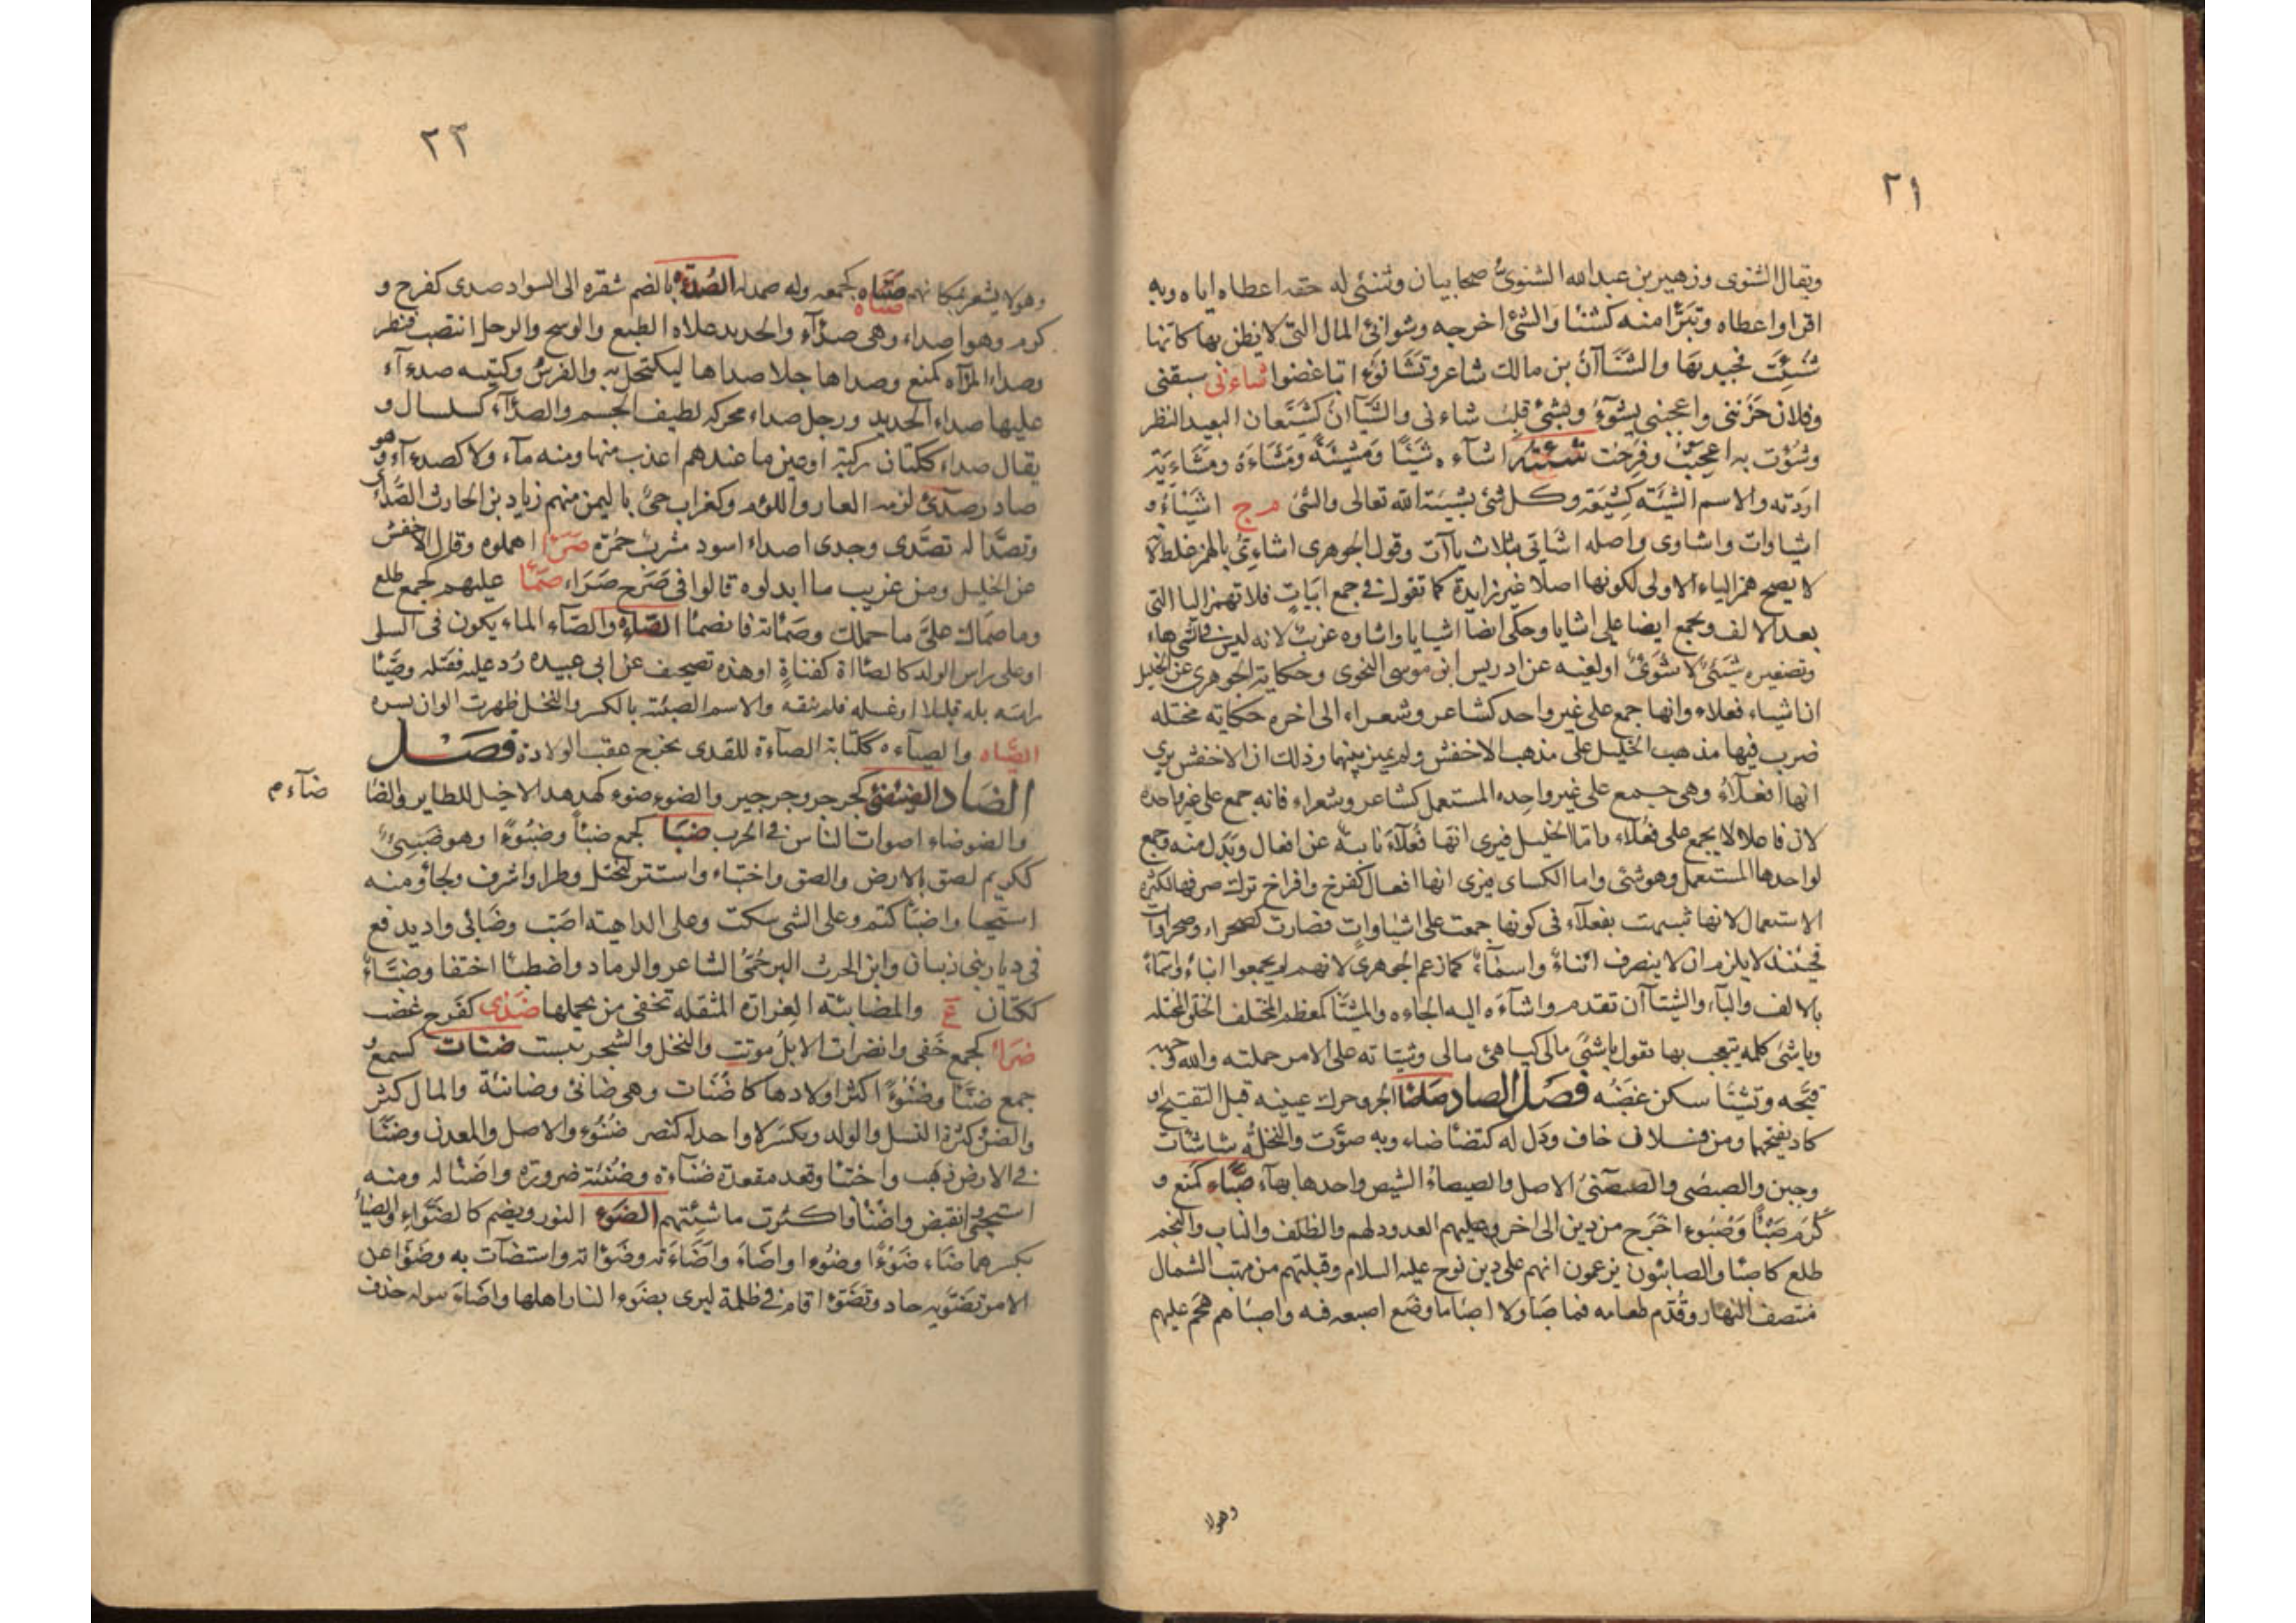 ٢١
ويقال الشنوى وزهير بن عبدالله الشنوىُّ صحابيان وشنئى له حقه اعطاه اياه وبه
اقرا واعطاه وتبرّا منه كشنا والشئ اخرجه وشوانئ المال التى لا يظن بها كانها
شُنِئت فجيد بها والشَّنَآنُ بن مالك شاعر وتشانؤا تباغضوا شاءنى سبقنى
وفلان حزننى واعجبنى يشوءُ ويشئ قلب شاء نى والشَّيآنُ كشيّعان البعيد النظر
وشؤت به اعجبت وفرحت شئته اشآءه شيئًا ومشيئةً ومشاءةً ومشاءيةً
اردته والاسم الشيئة كشيعة وكل شئ بشيئة الله تعالى والشئ م ج اشياءُ و
اشياوات واشاوى واصله اشايى بثلاث يآآت وقول الجوهرى اشاءِىُّ بالهمز غلط لانه
لا يصح همز الياء الاولى لكونها اصلا غير زايدة كما تقول فى جمع ابيات فلا تهمز اليا التى
بعد الالف ويجمع ايضا على اشايا وحكى ايضا اشيايا واشاوه غريب لانه ليس فى شئ هاء
وتصغيره شُيَئٌ لا شُوَئٌ او لغيه عن ادريس ابن موسى النحوى وحكاية الجوهرى عن الخليل
ان اشياء فعلاء وانها جمع على غير واحد كشاعر وشعراء الى اخره حكايته مختله
ضرب فيها مذهب الخليل على مذهب الاخفش ولم يميز بينهما وذلك ان الاخفش يرى
انها افعلاءُ وهى جمع على غير واحده المستعمل كشاعر وشعراء فانه جمع على غير واحده
لان فاعلا لا يجمع على فعلاء واما الخليل فيرى انها فعلاء نايبة عن افعال وبدل منه وجمع
لواحدها المستعمل وهو شئ واما الكساى فيرى انها افعال كفرخ وافراخ ترك صرفها لكثرة
الاستعمال لانها شبهت بفعلاء فى كونها جمعت على اشياوات فصارت كصحراء وصحراوات
فحينئذ لا يلزم ان لا ينصرف ابناءُ واسماءُ كما زعم الجوهرى لانهم لم يجمعوا ابناءً واسماءً
بالالف والتاء والشيئآن تقدم واشآءه اليه الجاءه والمشيّا كمعظم المختلف الخلق المختله
وياشئ كلمه يتعجب بها تقول ياشئ مالى كياهئ مالى وشيّاته على الامر حملته والله وجهه
قبّحه وتشيّأ سكن غضبُه فصل الصاد صاصا الجرو حرك عينيه قبل التفتيح او
كاد يفتحهما ومن فلان خاف وذل له كتصاصاء وبه صوّت والنخلةُ شاشات
وجبن والصيصى والصيصئ الاصل والصيصاءُ الشيص واحدها بهاء صبأ كمنع و
كَرُم صَبْأً وصُبُوء اخرج من دين الى اخر وعليهم العدو دلهم والظلف والناب والنجم
طلع كاصبا والصابئون يزعمون انهم على دين نوح عليه السلام وقبلتهم من مهب الشمال
منتصف النهار وقُدّم طعامه فما صبا ولا اصبا ما وضع اصبعه فيه واصباهم هجم عليهم
وهولا
٢٢
وهو لا يشعر بمكانهم صتاه كجمعه وله صمد له الصدأة بالضم شقره الى السواد صدى كفرح و
كرم وهو اصداء وهى صدآء والحديد علاه الطبع والوسخ والرجل انتصب فنظر
وصداء المرآه كمنع وصداها جلا صداها ليكتحل به والفرس وكتيبه صدءآء
عليها صداء الحديد ورجل صداء محركه لطيف الجسم والصدّاء كسلسال و
يقال صداء ككتان ركية او عين ما عندهم اعذب منها ومنه مآء ولا كصدءآء وهو
صادر صدئ لزمه العار واللؤم وكغراب حىّ باليمن منهم زياد بن الحارث الصدائى
وتصدّا له تصدّى وجدى اصداء اسود مشرب حمرة صرأ اهملوه وقال الاخفش
عن الخليل ومن غريب ما ابدلوه قالوا فى صرح صراء صمأ عليهم كجمع طلع
وما صماك علىّ ما حملك وصمأته فانصمأ الصاه والصآء الماء يكون فى السلى
او على راس الولد كالصاءة كقناة او هذه تصحيف عن ابى عبيده رد عليه فقبله وصيّا
راسه بله قليلا او غسله فلم ينقه والاسم الصيئة بالكسر والنخل ظهرت الوان بسره
الصّاه والصيآءه ككتابة الصآءة للقذى يخرج عقب الولادة فصل
الضاد الضئضئ كجرجر وجرجير والضؤضوء كهدهد الاخيل للطاير والضا
ضآء م
والضوضاء اصوات الناس فى الحرب ضبأ كجمع ضبأ وضبوءًا وهو ضبىءٌ
ككريم لصق بالارض والصق واختباء واستتر ليختل وطرا واشرف ولجأ ومنه
استحيا واضبأ كتم وعلى الشى سكت وعلى الداهيه اضب وضابئ واد يدفع
فى ديار بنى ذبيان وابن الحرث البرجُمىُّ الشاعر والرماد واضطبأ اختفا وضبّاءٌ
ككتان ع والمضابئه الغرارة المثقله تخفى من يحملها ضدى كفرح غضب
ضرأ كجمع خفى وانضرات الابل موتت والنخل والشجر يبست ضنات كسمع و
جمع ضنأ وضنُوءً اكثر اولادها كاضنات وهى ضانئ وضانئة والمال كثر
والضنؤ كثرة النسل والولد ويكسر لا واحد له كنفر ضنُوء والاصل والمعدن وضنأ
فى الارض ذهب واختبا وقعد مقعدة ضناءة وضنئة ضرورة واضنأ له ومنه
استحيى وانقبض واضنأوا كثرت ماشيتهم الضوء النور ويضم كالضواء والضياء
بكسرهما ضاء ضوْءًا وضُوءا واضاء واضاءته وضوّاته واستضات به وضوّا عن
الامر تضوية حاد وتضوّا قام فى ظلمة ليرى بضوء النار اهلها واضاء ببوله حذف